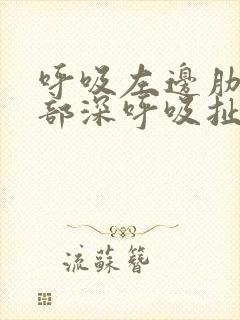 呼吸左邊肋
部深呼吸扯
流蘇簪